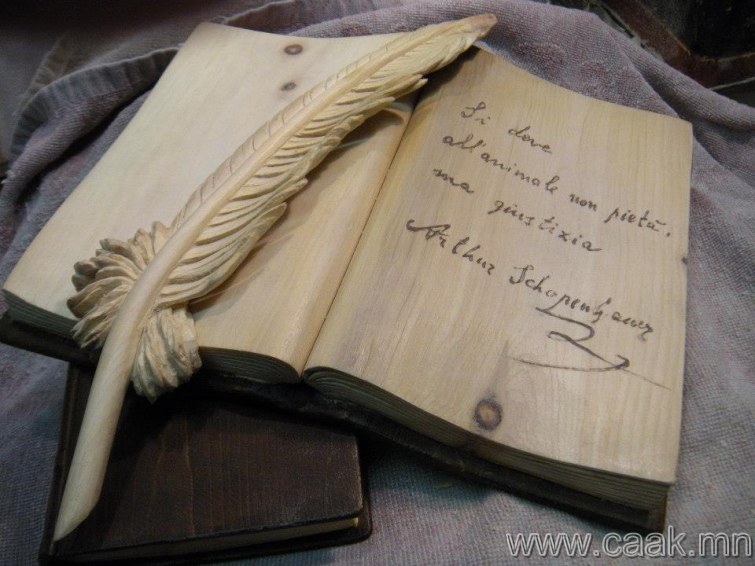 Si dove
all'animale non pietà,
ma giustizia
Arthur Schopenhauer
www.caak.mn